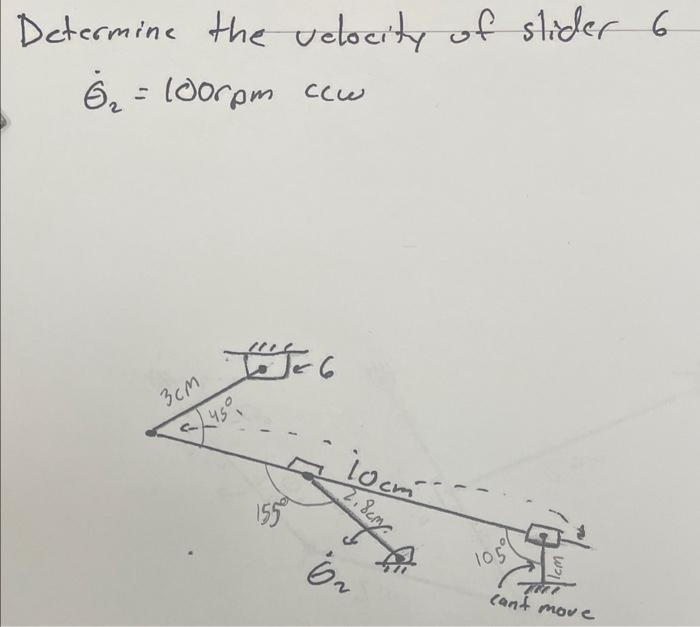 Determine the velocity of slider 6
θ̇₂ = 100rpm ccw
6
3cm
45°
10cm
2.8cm
155°
105°
1cm
θ̇₂
cant move